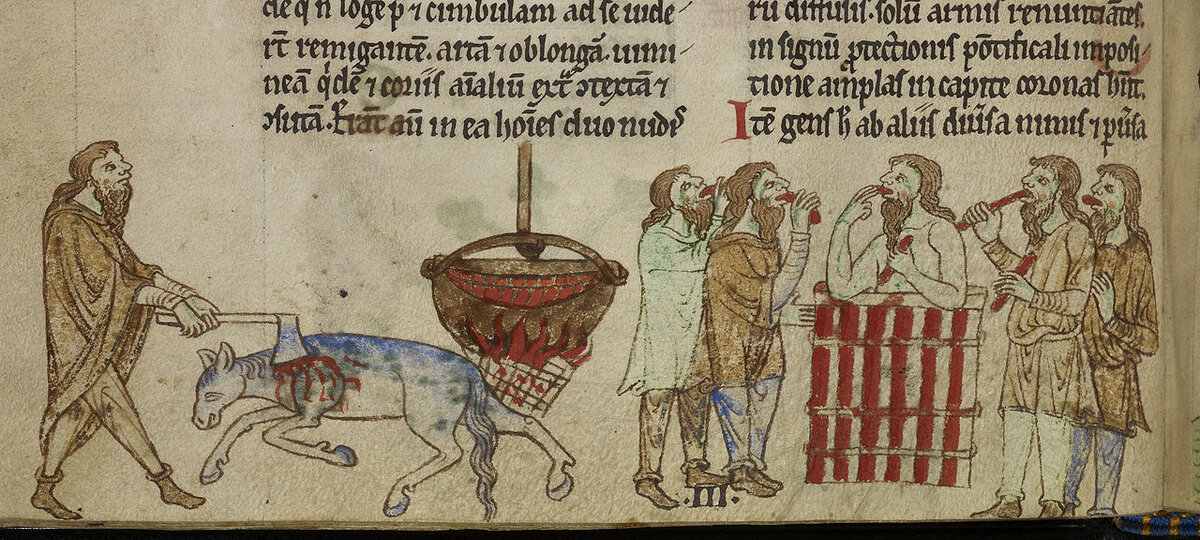 cimbulam ad se uide
rt̄ remigantē. artā ⁊ oblongā. uimi
neā q̇dē ⁊ coriis aīaliū ext̾ ꝯtextā ⁊
ꝯsutā. Erāt aū in ea hoīes duo nudis
ru diffusis. solū armis renuntiātes.
in signū ꝓtectionis pōtificali imposi
tione amplas in capite coronas hn̄t.
Itē gens h̄ ab aliis diūsa nimis ⁊ ꝑūsa
.III.